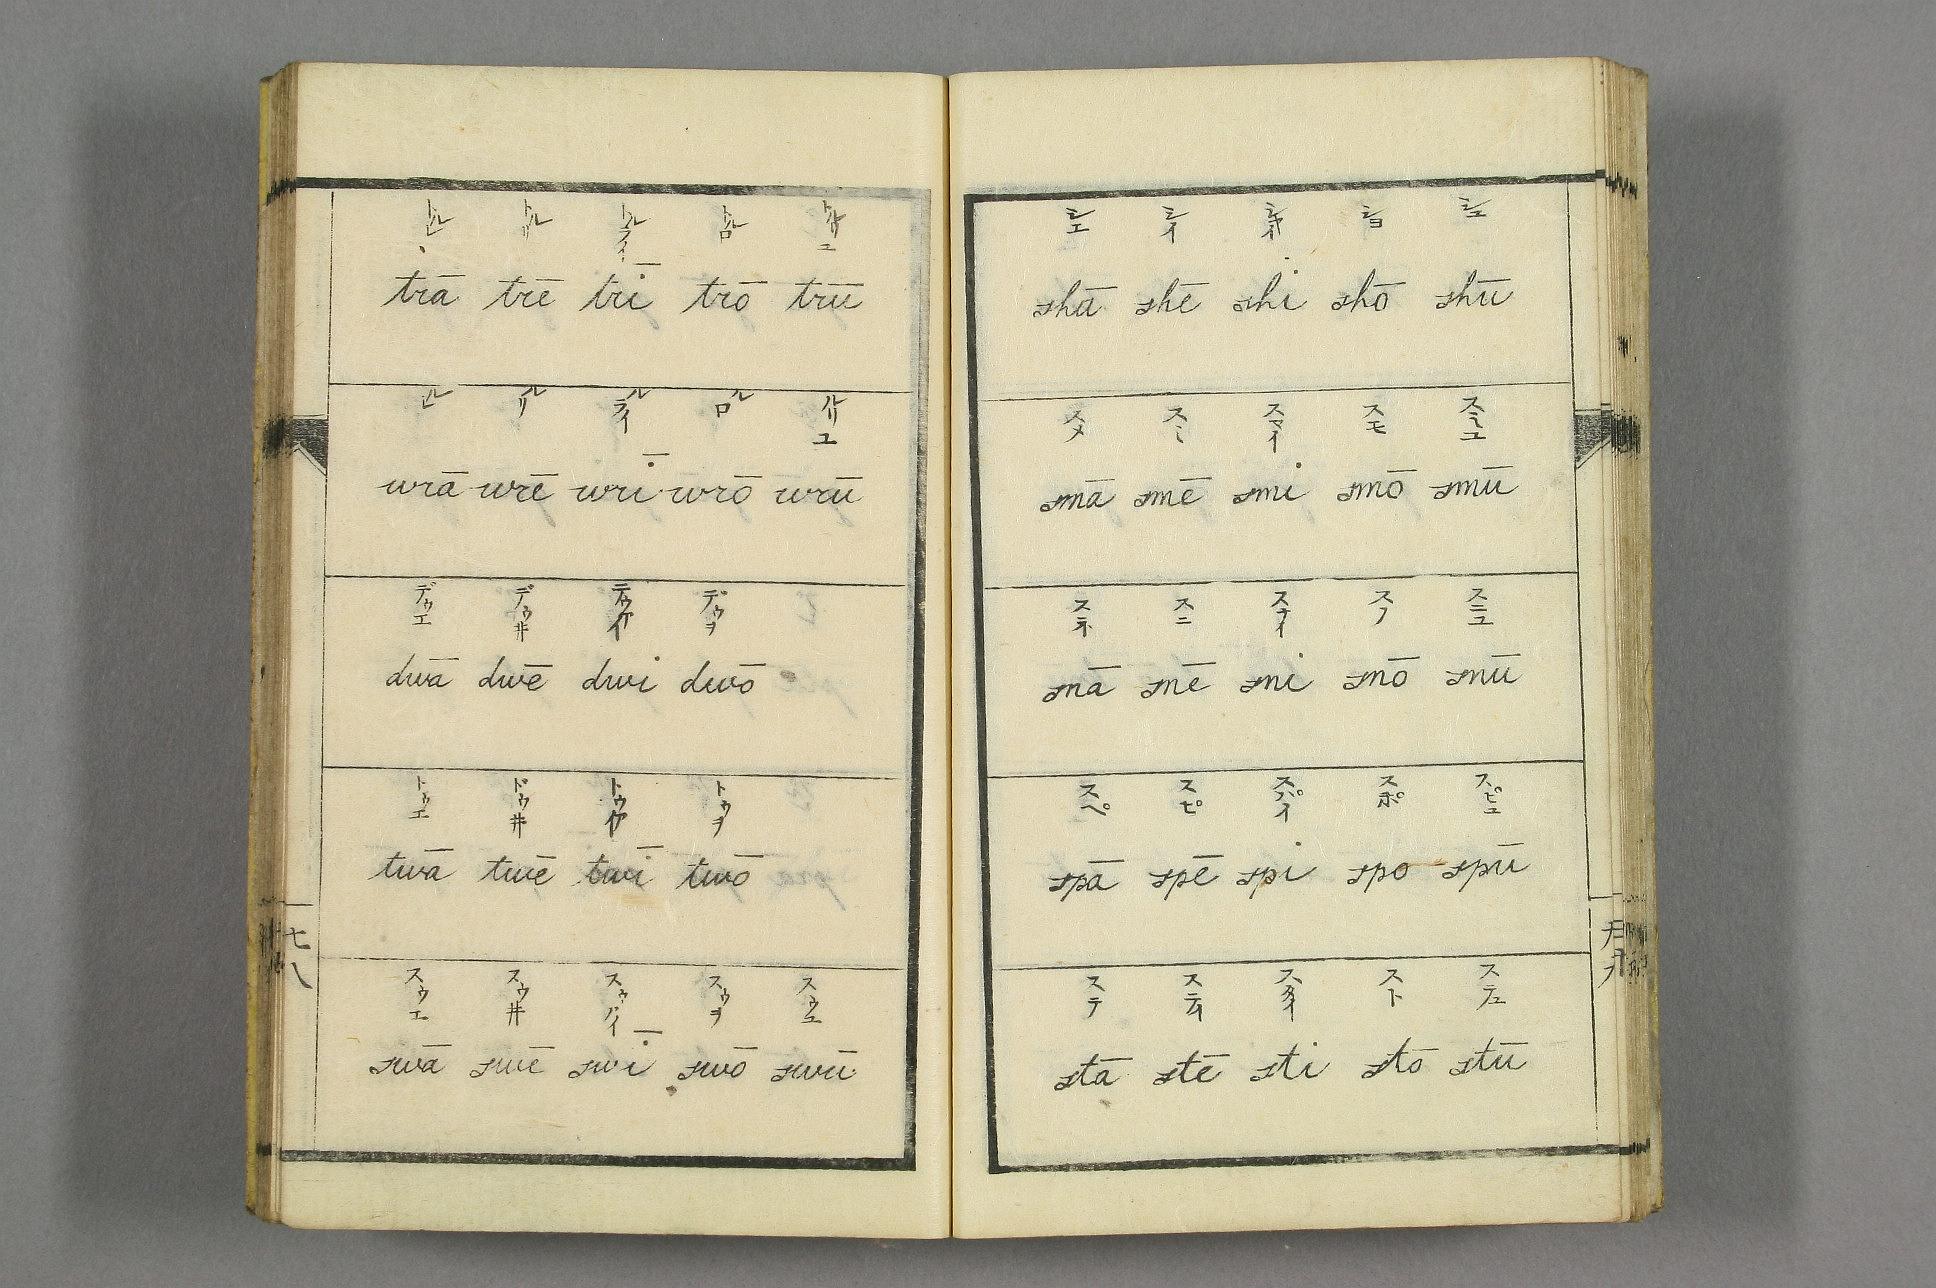 シエ シイ シャイ ショ シュ
shā shē shi shō shū
スメ スミ スマイ スモ スミユ
smā smē smi smō smū
スネ スニ スナイ スノ スニユ
snā snē sni snō snū
スペ スピ スパイ スポ スピュ
spā spē spi spo spū
ステ スティ スタイ スト ステュ
stā stē sti stō stū
トルレ トルリ トルライ トルロ トルリユ
trā trē trī trō trū
ルレ ルリ ルライ ルロ ルリユ
wrā wrē wrī wrō wrū
デゥエ デゥヰ デゥヲ
dwā dwē dwi dwō
トゥエ ドゥヰ トゥヲ
twā twē twī twō
スゥエ スゥヰ スゥバイ スゥヲ スゥユ
swā swē swī swō swū
七八